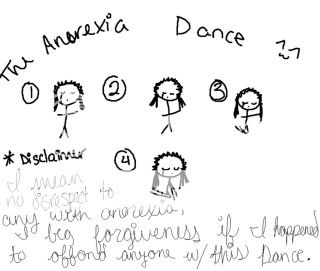 The Anorexia Dance
1 2 3
* Disclaimer 4
I mean
no disrespect to
any with anorexia,
I beg forgiveness if I happened
to offond anyone w/ this Dance.